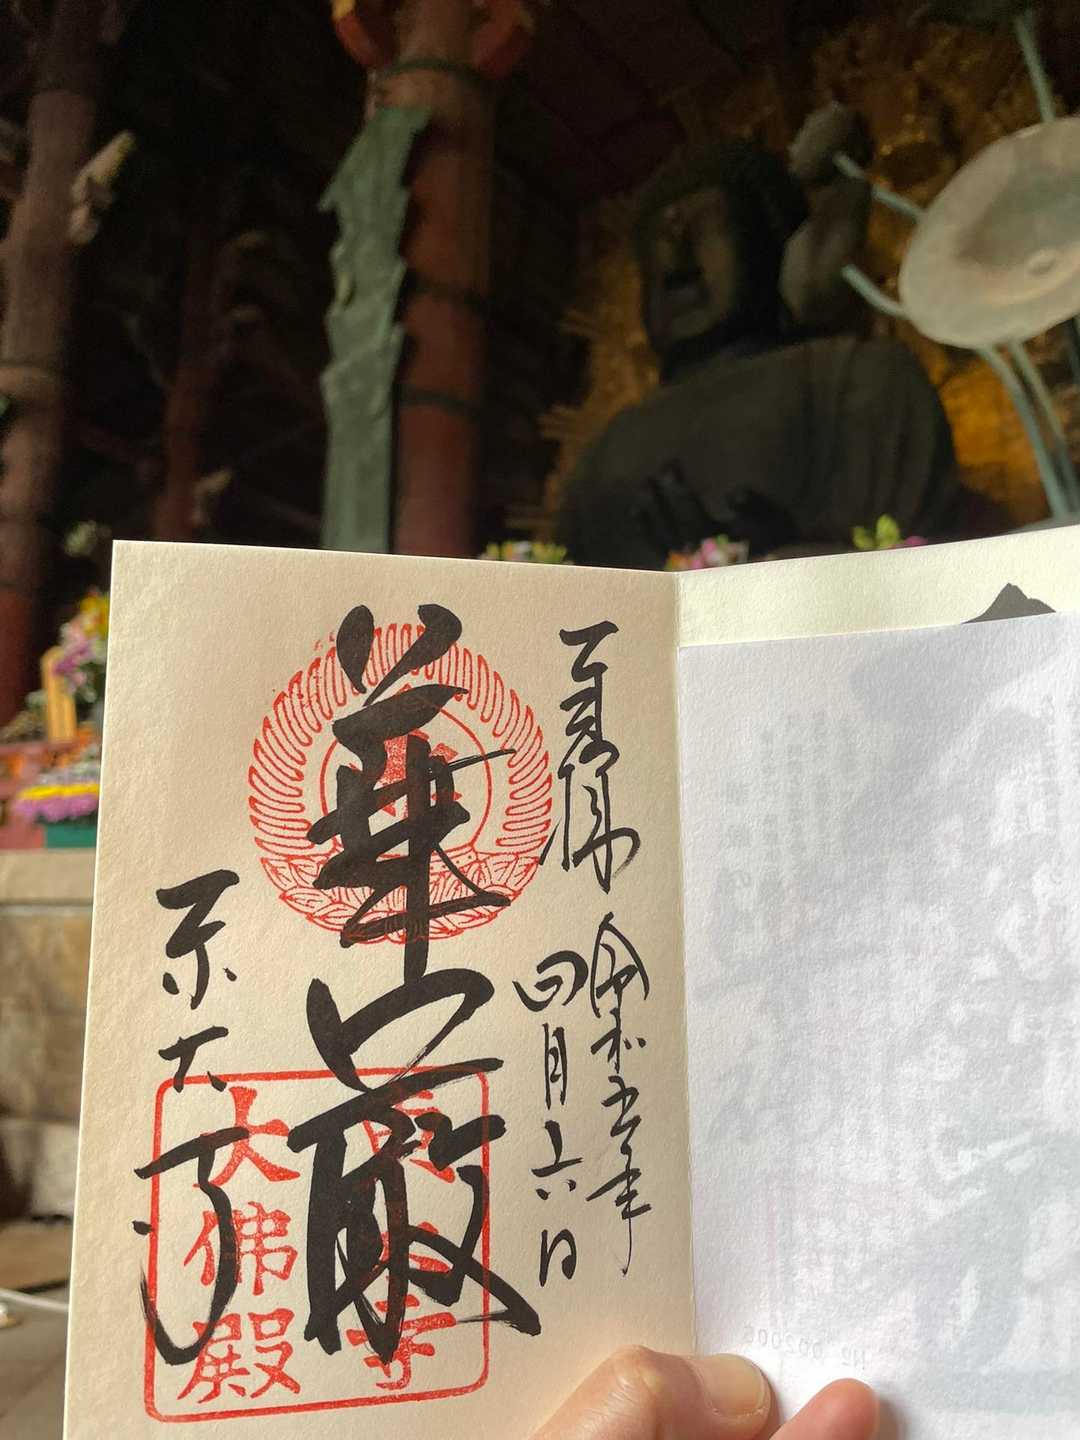 奉拝
令和五年
四月六日
華嚴
東大寺
東大寺
大佛殿